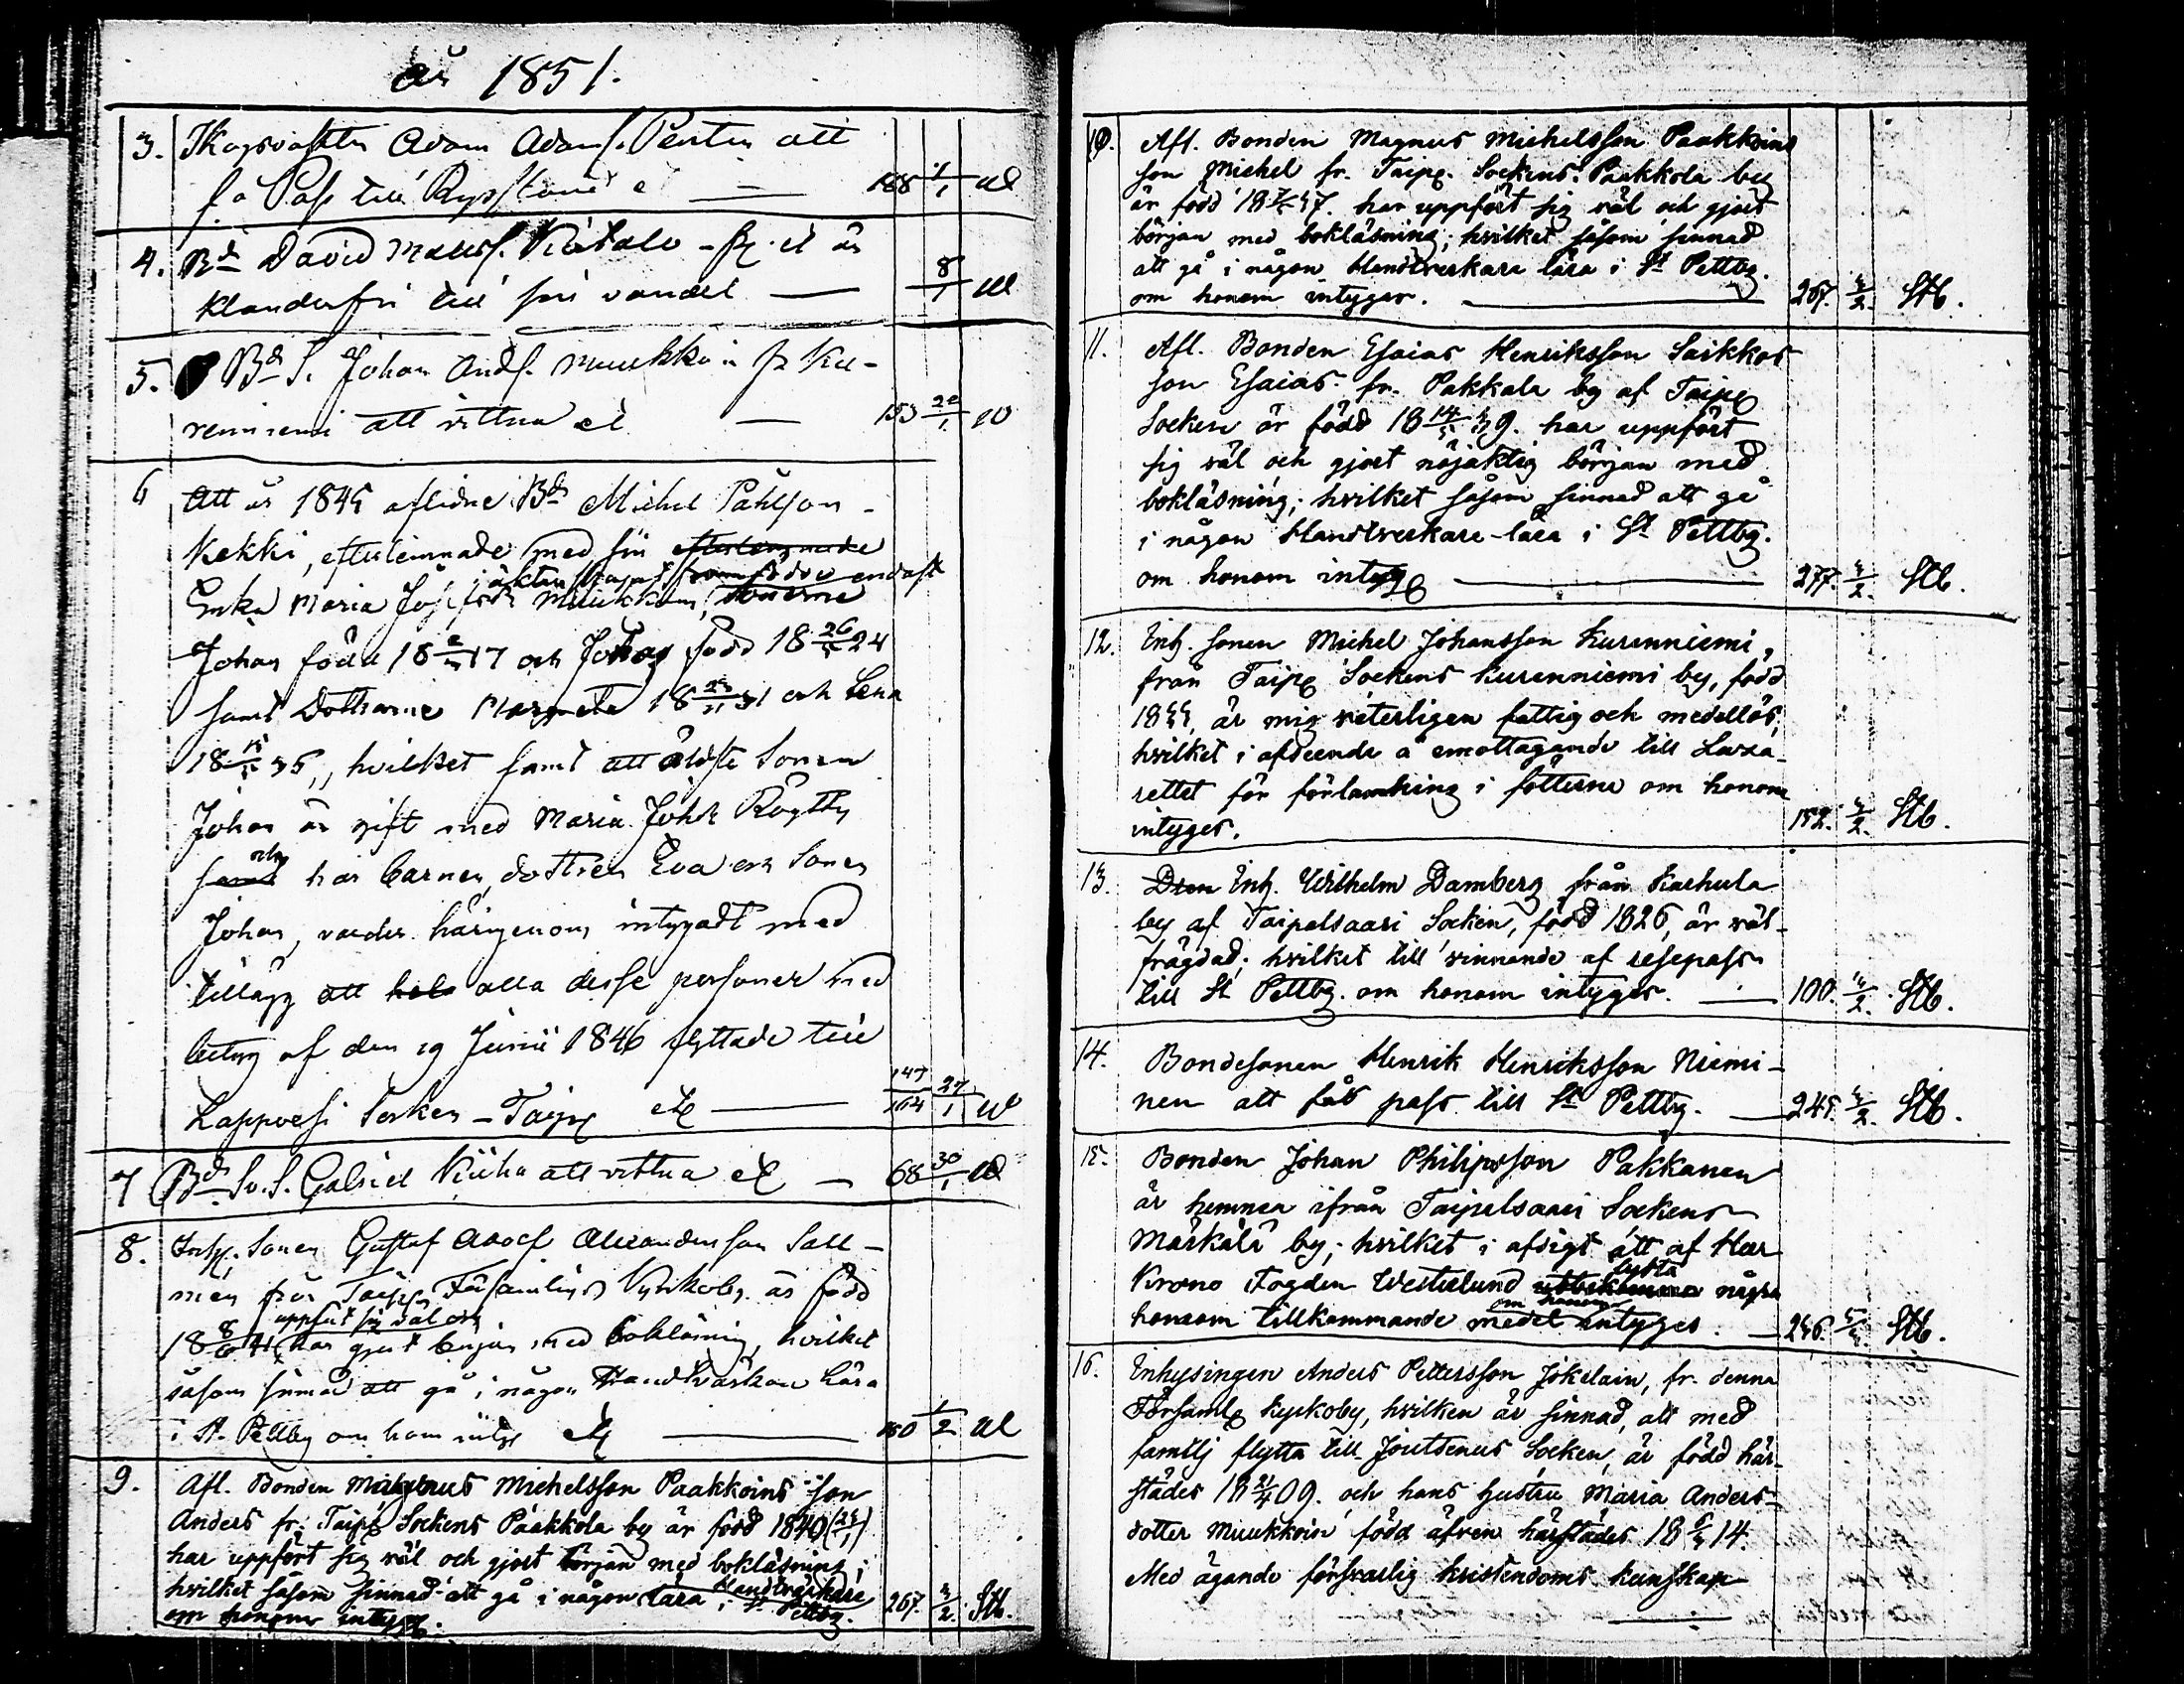 år 1851.
3. Skogsvaktn Adam Adamss. Penttin att
få Pass till Ryssland 188 1/1 Al
4. Bd David Matss. fr. är
klanderfri till sin vandel 8/1 Al
5. Bd S. Johan Andss. Muukkoin fr Ku-
renniemi att vittna et 153 20/1 Al
6 Att år 1845 aflidne Bd Michel Påhlson
Kekki, efterlemnade med sin efterlemnade
i äktenskapet framfödde endast
Enka Maria Jos.dr Muukkoin, sönerne
Johan född 18 17 och född 18 26 24
samt Döttrarne Margeta 18 31 och Lena
18 36, hvilket samt att äldste Sonen
Johan är gift med Maria Johsdr
och
samt har barnen, dottren Eva och Sonen
Johan, varder härigenom intygadt med
tillägg att hela alla desse personer med
betyg af den 19 Junii 1846 flyttade till
Lappvesi Socken - Taip 147/164 27/1 Al
7 Bd So. S. Gabriel Kiiha att vittna 68 30/1 Al
8. Inh. Sonen Gustaf Adolf Alexandersson Sall-
mén från Taip Församlings Kyrkoby är född
uppfört sig väl och
18 8/6 41 har gjort början med bokläsning, hvilket
såsom sinnad att gå i någon Handtvärkare lära
i St. Pettbg om hom intyg 160 1/2 Al
9. Afl. Bonden Magnus Michelsson Paakkoins son
Anders fr. Taip Sockens Paakkola by är född 1840
har uppfört sig väl och gjort början med bokläsning;
hvilket såsom sinnad att gå i någon Handtverkare
lära i St Pettbg.
om honom intyg. 267. 3/2. Stb.
10. Afl. Bonden Magnus Michelsson Paakkoins
son Michel fr. Taip. Sockens Paakkola by
är född 18 . har uppfört sig väl och gjort
början med bokläsning; hvilket såsom sinnad
att gå i någon Handtverkare lära i St Pettbg.
om honom intyges. 267. 3/2. Stb.
11. Afl. Bonden Esaias Henriksson Saikkos
son Esaias fr. Pakkala by af Taip
Socken är född 18 14 39. har uppfört
sig väl och gjort nöjaktig början med
bokläsning; hvilket såsom sinnad att gå
i någon Handtverkare-lära i St Pettbg.
om honom intyg 277. 3/2. Stb.
12. Inh. sonen Michel Johansson Kurenniemi,
från Taip Sockens Kurenniemi by, född
18 , är mig veterligen fattig och medellös;
hvilket i afseende å emottagande till Laza-
rettet för förlamning i fötterne om honom
intyges. 152. 3/2. Stb.
13. Dren Inh. Wilhelm Damberg från Karhula
by af Taipalsaari Socken, född 1826, är väl-
frägdad; hvilket till vinnande af resepass
till St Pettbg. om honom intyges. 100. /2. Stb.
14. Bondesonen Henrik Henriksson Niemi-
nen att fås pass till St Pettbg. 245. 3/2. Stb.
15. Bonden Johan Philipsson Pakkanen
är hemma ifrån Taipalsaari Sockens
Märkälä by; hvilket i afsigt att af Herr
lyfta
Krono Fogden Westerlund utbekomma några
om honom
honom tillkommande medel intyges. 246. Stb.
16. Inhysingen Anders Pettersson Jokelain, fr. denna
Församl Kyrkoby, hvilken är sinnad, att med
familj flytta till Joutsenus Socken, är född här-
städes 18 21/4 09. och hans hustru Maria Anders-
dotter Muukkoin född äfven härstädes 18 14.
Med ägande försvarlig kristendoms kunskap